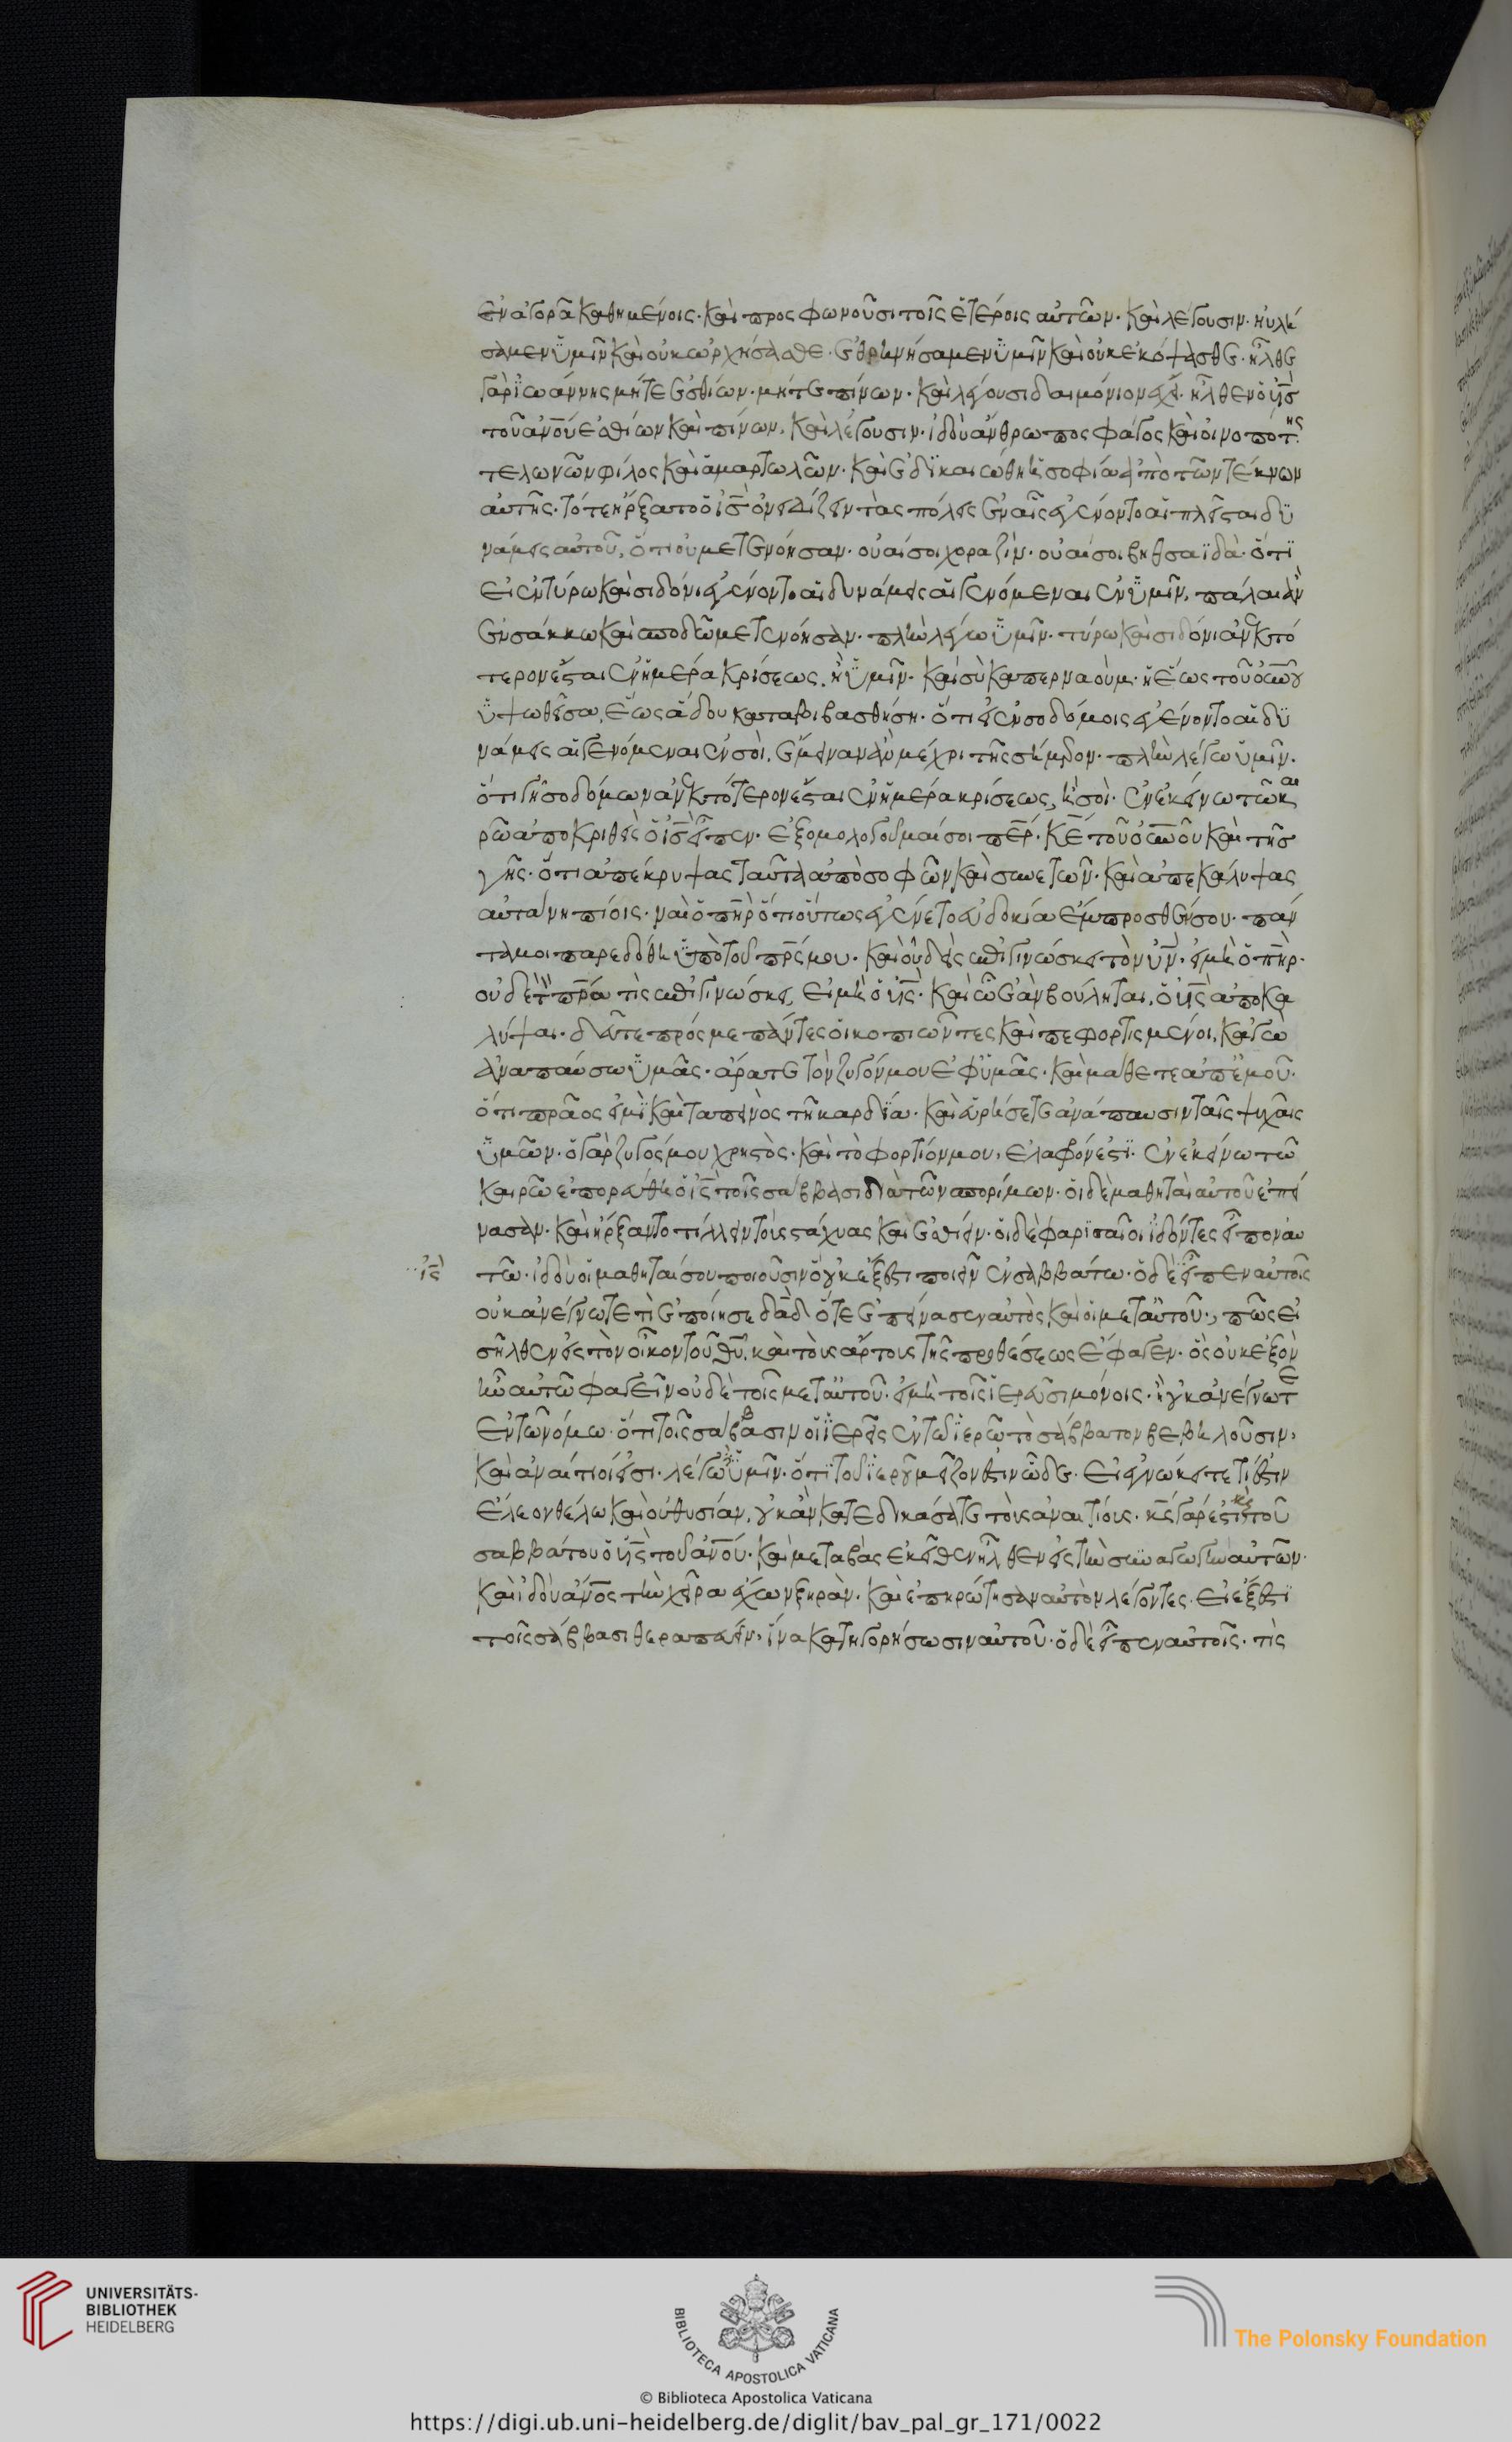 ἐν ἀγορᾶ καθημένοις· καὶ προσφωνοῦσι τοῖς ἑτέροις αὐτῶν· καὶ λέγουσιν· ηὐλή
σαμεν ὑμῖν καὶ οὐκ ὠρχήσασθε· ἐθρηνήσαμεν ὑμῖν καὶ οὐκ ἐκόψασθε· ἦλθε
γὰρ ἰωάννης μήτε ἐσθίων· μήτε πίνων· καὶ λέγουσι δαιμόνιον ἔχει· ἦλθεν ὁ υἱς
τοῦ ἀνου ἐσθίων καὶ πίνων, καὶ λέγουσιν· ἰδοὺ ἄνθρωπος φάγος καὶ οἰνοπότης
τελωνῶν φίλος καὶ ἁμαρτωλῶν· καὶ ἐδικαιώθη ἡ σοφία ἀπὸ τῶν τέκνων
αὐτῆς· τότε ἤρξατο ὁ ις ὀνειδίζειν τὰς πόλεις ἐν αἷς ἐγένοντο αἱ πλεῖσται δυ
νάμεις αὐτοῦ, ὅτι οὐ μετενόησαν· οὐαί σοι χοραζίν· οὐαί σοι βηθσαϊδά· ὅτι
εἰ ἐν τύρω καὶ σιδόνι ἐγένοντο αἱ δυνάμεις αἱ γενόμεναι ἐν ὑμῖν, πάλαι ἂν
ἐν σάκκω καὶ σποδῶ μετενόησαν· πλὴν λέγω ὑμῖν· τύρω καὶ σιδόνι ἀνεκτό
τερον ἔσται ἐν ἡμέρα κρίσεως, ἢ ὑμῖν· καὶ σὺ καπερναούμ· ἡ ἕως τοῦ ουνου
ὑψωθεῖσα, ἕως ἅδου καταβιβασθήση· ὅτι εἰ ἐν σοδόμοις ἐγένοντο αἱ δυ
νάμεις αἱ γενόμεναι ἐν σοί, ἔμειναν ἂν μέχρι τῆς σήμερον· πλὴν λέγω ὑμῖν·
ὅτι γῆ σοδόμων ἀνεκτότερον ἔσται ἐν ἡμέρα κρίσεως, ἢ σοί· ἐν ἐκείνω τῶ και
ρῶ ἀποκριθεὶς ὁ ις εἶπεν· ἐξομολογοῦμαί σοι περ· κε τοῦ ουνου καὶ τῆς
γῆς· ὅτι ἀπέκρυψας ταῦτα ἀπὸ σοφῶν καὶ συνετῶν· καὶ ἀπεκάλυψας
αὐτὰ νηπίοις· ναὶ ὁ πηρ ὅτι οὕτως ἐγένετο εὐδοκία ἔμπροσθέν σου· πάν
τα μοι παρεδόθη ὑπὸ τοῦ πρς μου· καὶ οὐδεὶς ἐπιγινώσκει τὸν υν· εἰ μὴ ὁ πηρ·
οὐδὲ τὸν πρα τὶς ἐπιγινώσκει, εἰ μὴ ὁ υἱς· καὶ ὧ ἐὰν βούληται, ὁ υἱς ἀποκα
λύψαι· δεῦτε πρός με πάντες οἱ κοπιῶντες καὶ πεφορτισμένοι, κἀγὼ
ἀναπαύσω ὑμᾶς· ἄρατε τὸν ζυγόν μου ἐφ ὑμᾶς· καὶ μάθετε ἀπ ἐμοῦ·
ὅτι πρᾶος εἰμὶ καὶ ταπεινὸς τῆ καρδία· καὶ εὑρήσετε ἀνάπαυσιν ταῖς ψυχαῖς
ὑμῶν· ὁ γὰρ ζυγός μου χρηστὸς· καὶ τὸ φορτίον μου, ἐλαφρόν ἐστι· ἐν ἐκείνω τῶ
καιρῶ ἐπορεύθη ὁ ις τοῖς σάββασι διὰ τῶν σπορίμων· οἱ δὲ μαθηταὶ αὐτοῦ ἐπεί
νασαν· καὶ ἤρξαντο τίλλειν τοὺς στάχυας καὶ ἐσθίειν· οἱ δὲ φαρισαῖοι ἰδόντες εἶπον αὐ
τῶ· ἰδοὺ οἱ μαθηταί σου ποιοῦσιν ὃ οὐκ ἔξεστι ποιεῖν ἐν σαββάτω· ὁ δὲ εἶπεν αὐτοῖς
οὐκ ἀνέγνωτε τί ἐποίησε δαδ ὅτε ἐπείνασεν αὐτὸς καὶ οἱ μετ αὐτοῦ·, πῶς εἰ
σῆλθεν εἰς τὸν οἶκον τοῦ θυ, καὶ τοὺς ἄρτους τῆς προθέσεως ἔφαγεν· οὓς οὐκ ἐξὸν
ἦν αὐτῶ φαγεῖν οὐδὲ τοῖς μετ αὐτοῦ· εἰ μὴ τοῖς ἱερεῦσι μόνοις· ἢ οὐκ ἀνέγνωτε
ἐν τῶ νόμω· ὅτι τοῖς σάββασιν οἱ ἱερεῖς ἐν τῶ ἱερῶ τὸ σάββατον βεβηλοῦσιν,
καὶ ἀναίτιοί εἰσι· λέγω ὑμῖν· ὅτι τοῦ ἱεροῦ μεῖζόν ἐστιν ὧδε· εἰ ἐγνώκειτε τί ἐστιν
ἔλεον θέλω καὶ οὐ θυσίαν, οὐκ ἂν κατεδικάσατε τοὺς ἀναιτίους· κς γάρ ἐστι καὶ τοῦ
σαββάτου ὁ υἱς τοῦ ἀνου· καὶ μεταβὰς ἐκεῖθεν ἦλθεν εἰς τὴν συναγωγὴν αὐτῶν·
καὶ ἰδοὺ ἀνος τὴν χεῖρα ἔχων ξηράν· καὶ ἐπηρώτησαν αὐτὸν λέγοντες· εἰ ἔξεστι
τοῖς σάββασι θεραπεύειν, ἵνα κατηγορήσωσιν αὐτοῦ· ὁ δὲ εἶπεν αὐτοῖς· τὶς
UNIVERSITÄTS-
BIBLIOTHEK
HEIDELBERG
BIBLIOTECA APOSTOLICA VATICANA
© Biblioteca Apostolica Vaticana
The Polonsky Foundation
https://digi.ub.uni-heidelberg.de/diglit/bav_pal_gr_171/0022